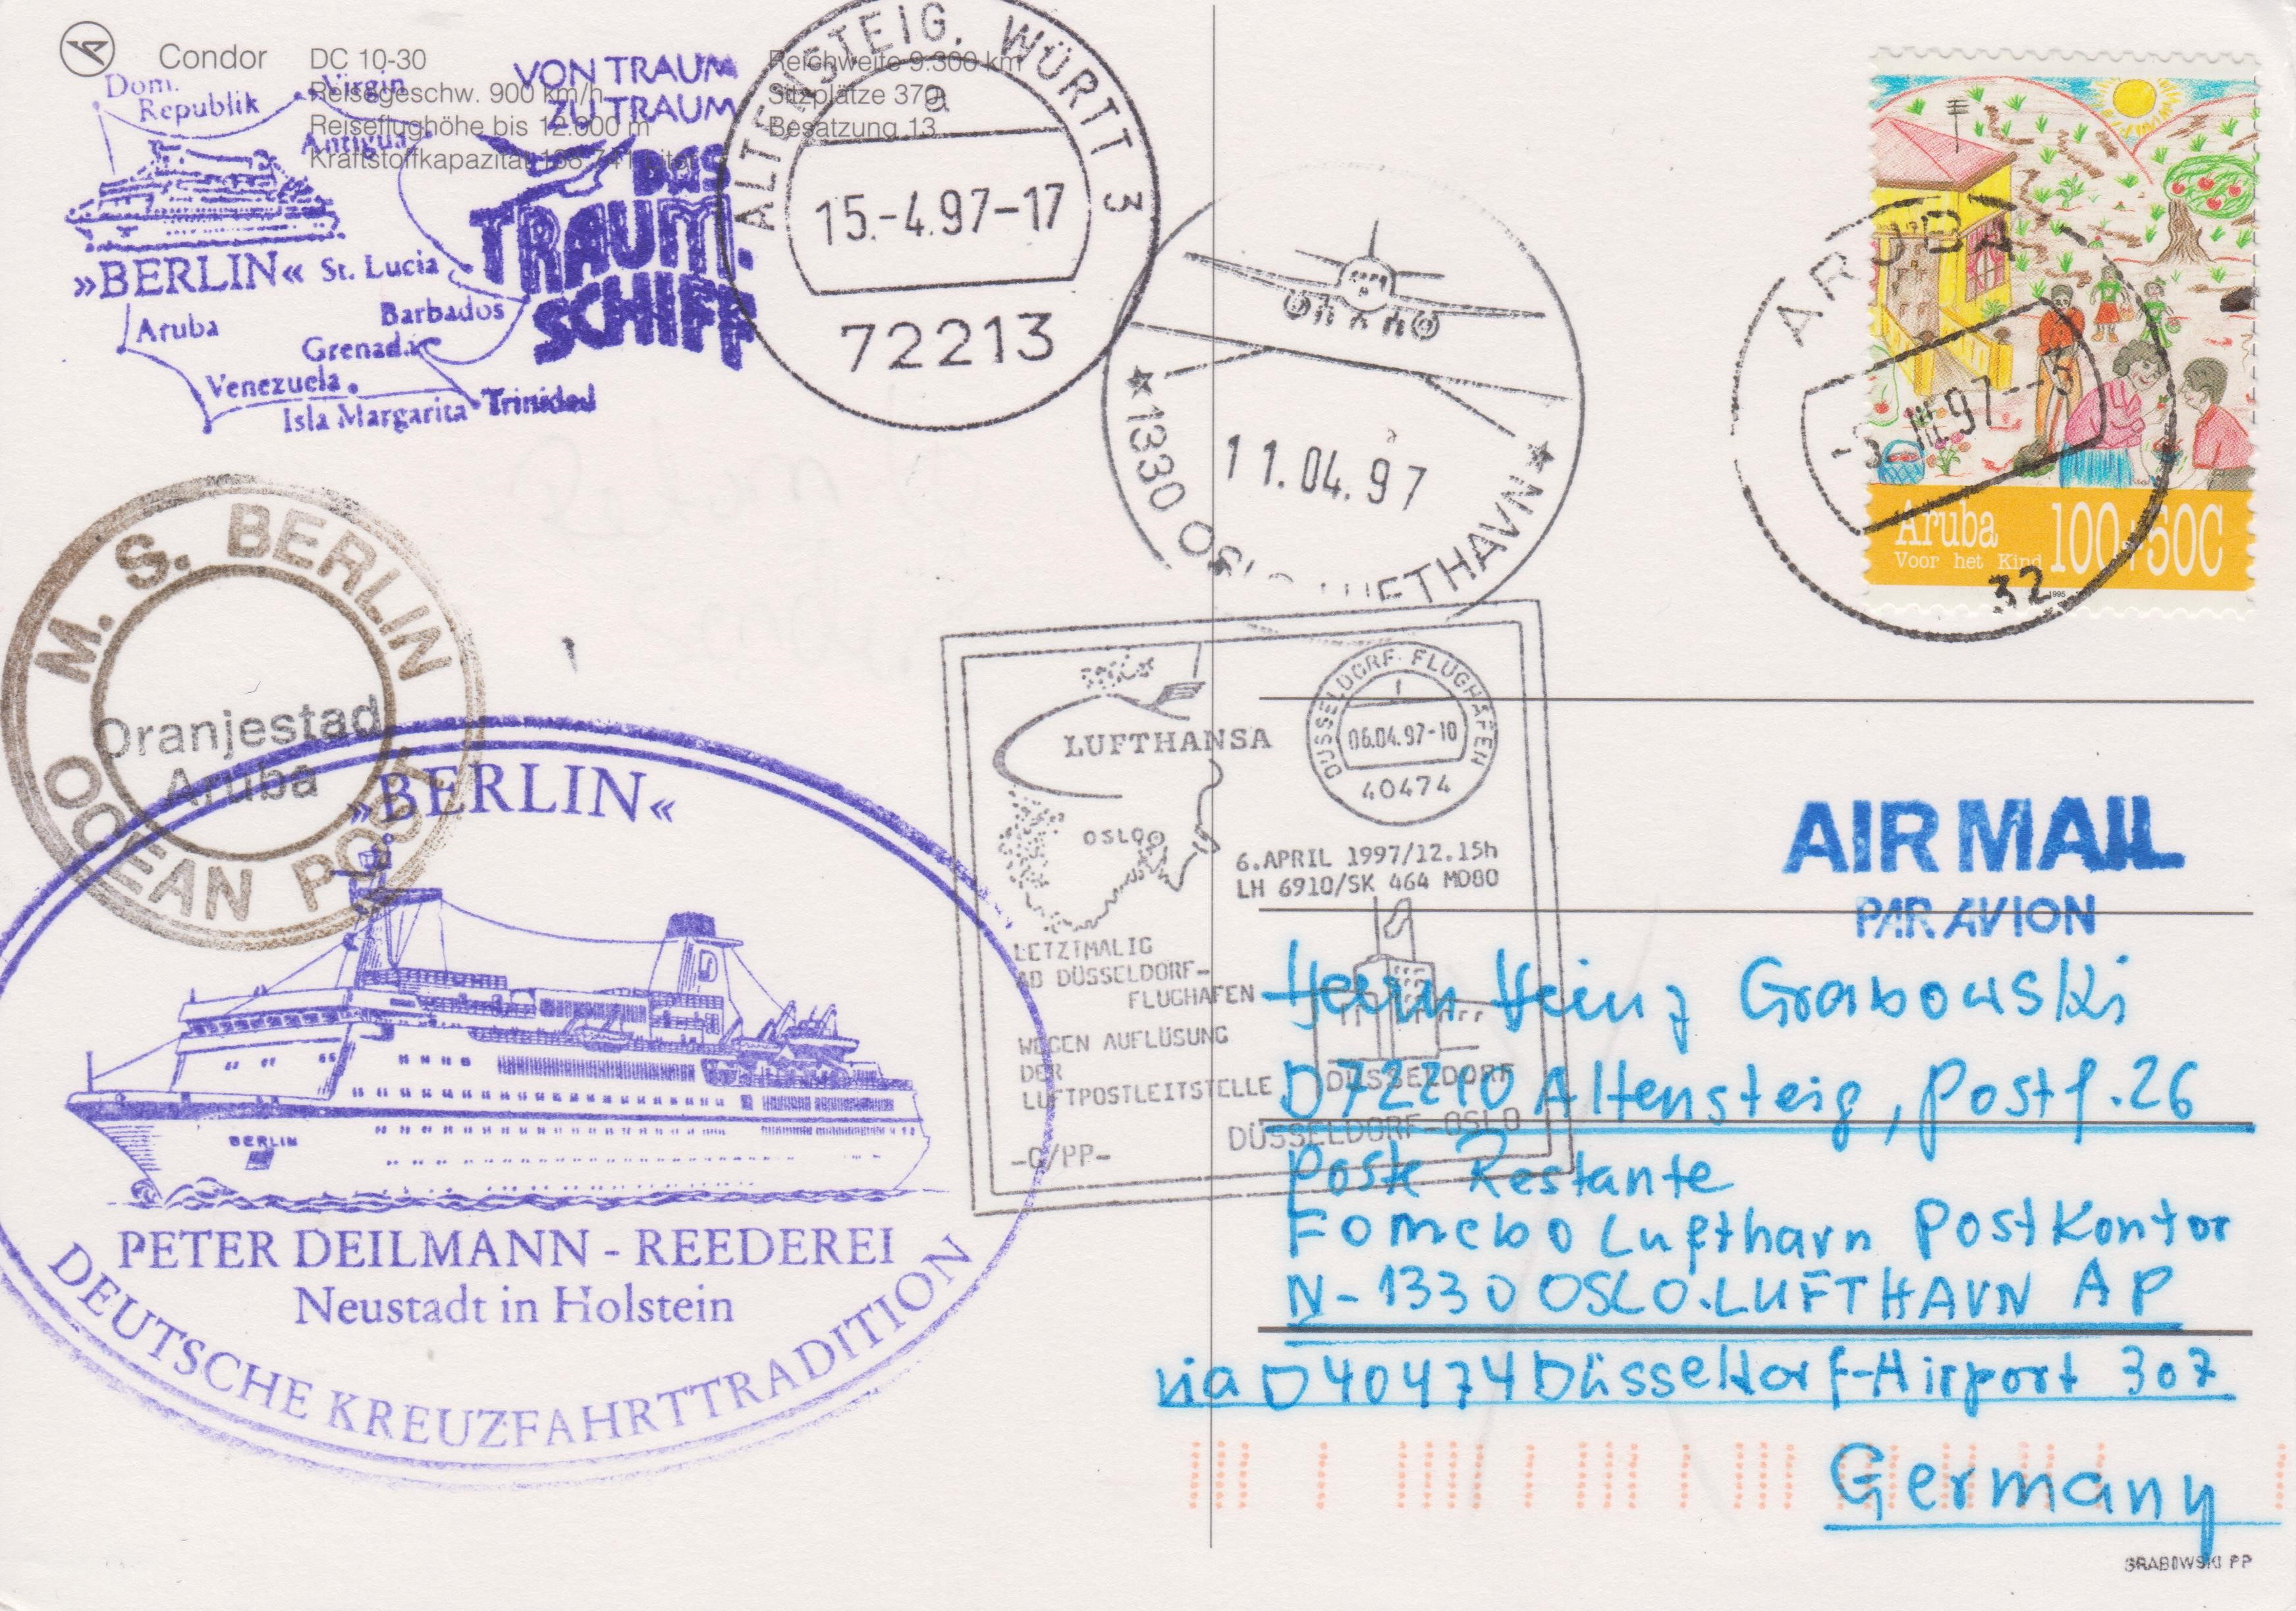 Condor
DC 10-30
Reisegeschw. 900 km/h
Reiseflughöhe bis 12.000 m
Kraftstoffkapazität
Reichweite 9.300 km
Sitzplätze 370
Besatzung 13
Dom.
Republik
Virgin
Antigua
»BERLIN«
St. Lucia
Barbados
Aruba
Grenada
Venezuela
Isla Margarita
Trinidad
VON TRAUM
ZU TRAUM
DAS
TRAUM-
SCHIFF
ALTENSTEIG, WÜRTT 3
a
15.-4.97-17
72213
11.04.97
*1330 OSLO LUFTHAVN*
ARUBA
32
Aruba
Voor het Kind
100+50C
1995
M. S. BERLIN
Oranjestad
Aruba
OCEAN POST
»BERLIN«
BERLIN
PETER DEILMANN - REEDEREI
Neustadt in Holstein
DEUTSCHE KREUZFAHRTTRADITION
LUFTHANSA
OSLO
DÜSSELDORF FLUGHAFEN
06.04.97-10
40474
6.APRIL 1997/12.15h
LH 6910/SK 464 MD80
LETZTMALIG
AB DÜSSELDORF-
FLUGHAFEN
WEGEN AUFLÖSUNG
DER
LUFTPOSTLEITSTELLE
DÜSSELDORF
DÜSSELDORF-OSLO
AIR MAIL
PAR AVION
Herrn Heinz Grabowski
D 72210 Altensteig, Postf. 26
Poste Restante
Fornebo Lufthavn Postkontor
N-1330 OSLO.LUFTHAVN AP
via D 40474 Düsseldorf-Airport 307
Germany
GRABOWSKI PP